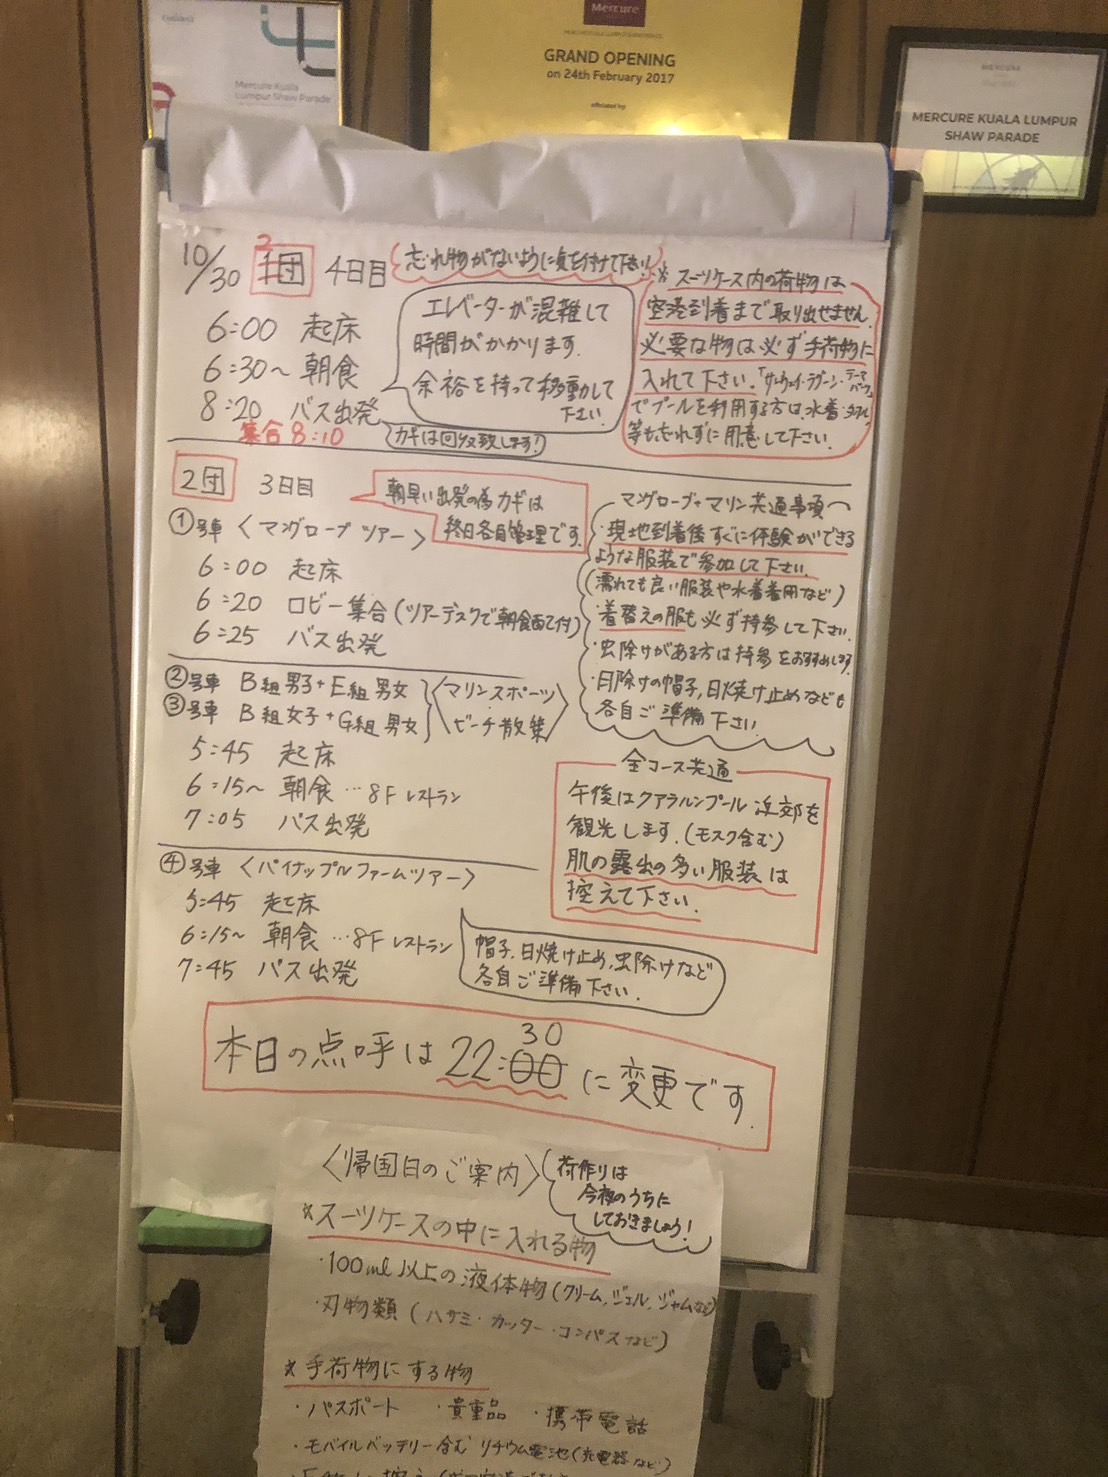 Mercure Kuala
Lumpur Shaw Parade
Mercure
GRAND OPENING
on 24th February 2017
officiated by
MERCURE
MERCURE KUALA LUMPUR
SHAW PARADE
10/30 1団 4日目
2
忘れ物がないように気を付けて下さい!
6:00 起床
6:30~ 朝食
8:20 バス出発
集合 8:10
エレベーターが混雑して
時間がかかります.
余裕を持って移動して
下さい.
カギは回収致します!
※スーツケース内の荷物は
空港到着まで取り出せません.
必要な物は必ず手荷物に
入れて下さい.「サンウェイ・ラグーン・テーマパーク」
でプールを利用する方は、水着・タオル
等も忘れずに用意して下さい.
2団 3日目
朝早い出発の為カギは
終日各自管理です.
①号車 〈マングローブツアー〉
6:00 起床
6:20 ロビー集合(ツアーデスクで朝食受付)
6:25 バス出発
マングローブ+マリン共通事項
・現地到着後すぐに体験ができる
ような服装で参加して下さい.
(濡れても良い服装や水着着用など)
・着替えの服も必ず持参して下さい.
・虫除けがある方は持参をおすすめします.
・日除けの帽子,日焼け止めなども
各自ご準備下さい.
②号車 B組男子+E組男女
③号車 B組女子+G組男女
〈マリンスポーツ
ビーチ散策〉
5:45 起床
6:15~ 朝食…8Fレストラン
7:05 バス出発
全コース共通
午後はクアラルンプール近郊を
観光します.(モスク含む)
肌の露出の多い服装は
控えて下さい.
④号車 〈パイナップルファームツアー〉
5:45 起床
6:15~ 朝食…8Fレストラン
7:45 バス出発
帽子,日焼け止め,虫除けなど
各自ご準備下さい.
30
本日の点呼は 22:00 に変更です.
〈帰国日のご案内〉
荷作りは
今夜のうちに
しておきましょう!
*スーツケースの中に入れる物
・100ml以上の液体物(クリーム,ジェル,ジャムなど)
・刃物類(ハサミ・カッター・コンパスなど)
*手荷物にする物
・パスポート ・貴重品 ・携帯電話
・モバイルバッテリー含む リチウム電池(充電器など)